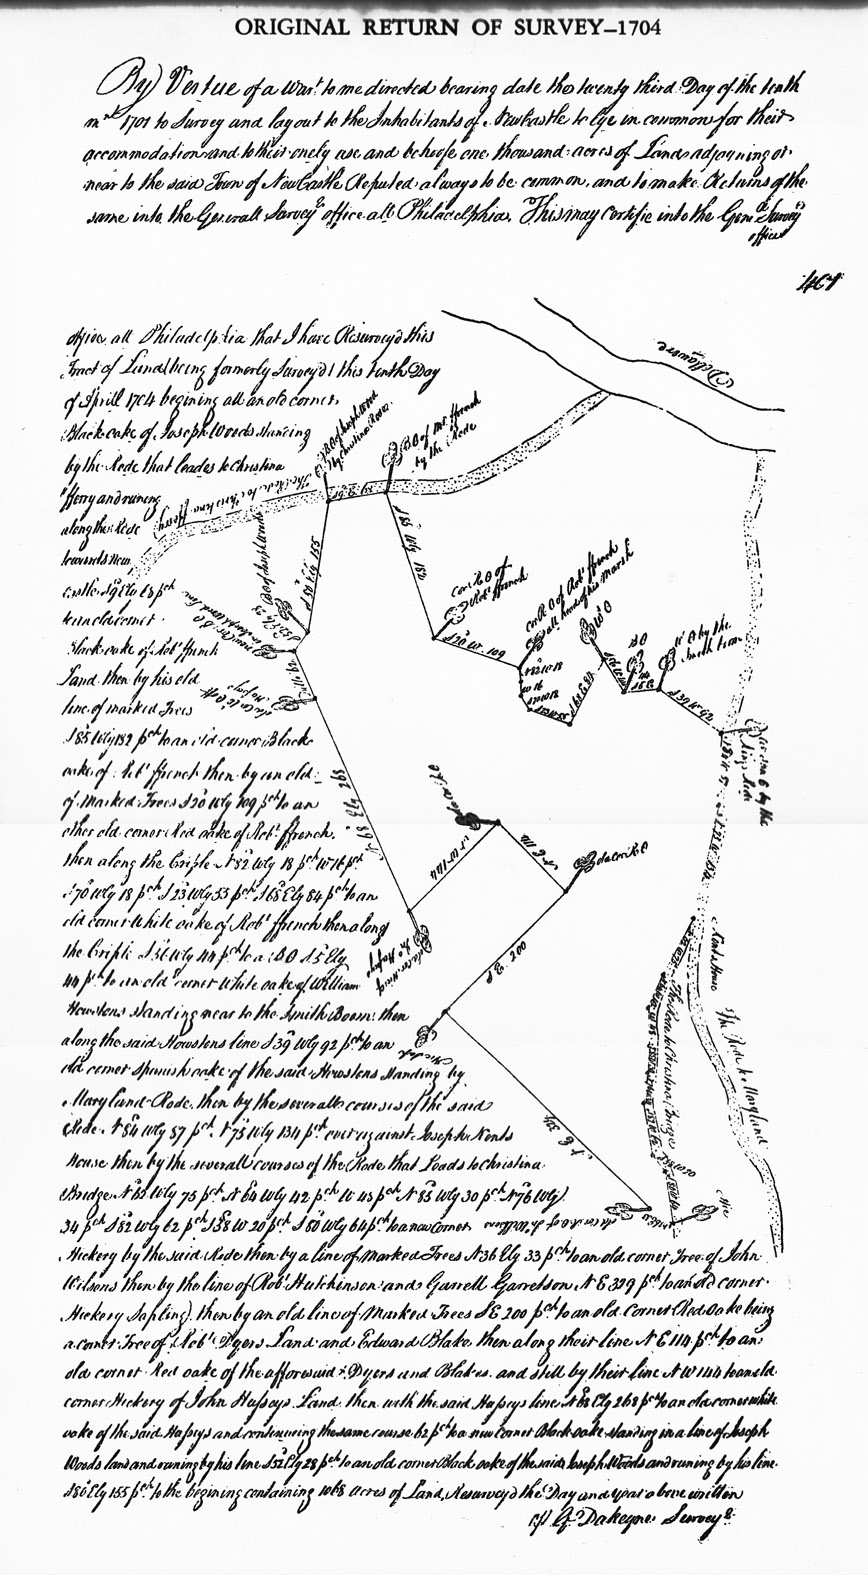 ORIGINAL RETURN OF SURVEY—1704
By Vertue of a Warᵗ to me directed bearing date the twenty third Day of the tenth
mᵗʰ 1701 to Survey and lay out to the Inhabitants of NewCastle to Lye in common for their
accommodation and to their onely use and behoofe one thousand acres of Land adjoyning or
near to the said Town of NewCastle Reputed always to be common, and to make Returns of the
same into the Generall Surveyʳˢ office att Philadelphia. This may Certifie into the Genˡˡ Surveyʳˢ
office
467
office att Philadelphia that I have Resurvey'd this
Tract of Land (being formerly Survey'd) this tenth Day
of Aprill 1704 begining att an old corner
Black oake of Joseph Woods standing
by the Rode that leades to Christina
fferry and runing
along the Rode
towards New
Castle S 9 Ely 68 pᶜʰ
to an old corner
Black oake of Robᵗ ffrench
Land then by his old
line of marked Trees
S 85 Wly 182 pᶜʰ to an old corner Black
oake of Robᵗ ffrench then by an old
of Marked Trees S 20 Wly 109 pᶜʰ to an
other old corner Red oake of Robᵗ ffrench.
then along the Criple N 82 Wly 18 pᶜʰ W 16 pᶜʰ
S 70 Wly 18 pᶜʰ S 23 Wly 53 pᶜʰ S 68 Ely 84 pᶜʰ to an
old corner White oake of Robᵗ ffrench then along
the Cripli S 36 Wly 44 pᶜʰ to a BO S 5 Ely
44 pᶜʰ to an old corner White oake of William
Howstons standing near to the Smith Boom then
along the said Howstons line S 39 Wly 92 pᶜʰ to an
old corner Spanish oake of the said Howstons standing by
Maryland Rode, then by the severall courses of the said
Rode N 84 Wly 57 pᶜʰ N 75 Wly 134 pᶜʰ over against Joseph Kents
House then by the severall courses of the Rode that Leads to Christina
Bridge N 65 Wly 75 pᶜʰ N 64 Wly 42 pᶜʰ W 43 pᶜʰ N 85 Wly 30 pᶜʰ N 76 Wly
34 pᶜʰ S 82 Wly 62 pᶜʰ S 58 W 20 pᶜʰ S 60 Wly 64 pᶜʰ to a new Corner
Hickery by the said Rode then by a line of Marked Trees N 36 Ely 33 pᶜʰ to an old corner Tree of John
Wilsons then by the line of Robᵗ Hutchinson and Garrett Garretson N E 339 pᶜʰ to an old corner
Hickery Sapling, then by an old line of Marked Trees S E 200 pᶜʰ to an old Corner Red Oake being
a corner Tree of Robᵗ Dyers Land and Edward Blake then along their line N E 114 pᶜʰ to an
old corner Red oake of the afforesaid Dyers and Blakes and still by their line N W 144 to an old
corner Hickery of John Husseys Land then with the said Husseys line N 68 Ely 268 pᶜʰ to an old corner white
oake of the said Husseys and continueing the same course 62 pᶜʰ to a new Corner Black oake standing in a line of Joseph
Woods land and runing by his line S 52 Ely 28 pᶜʰ to an old corner Black oake of the said Joseph Woods and runing by his line
S 80 Ely 155 pᶜʰ to the begining containing 1068 Acres of Land, Resurvey'd the Day and year above written
Dakeyne Surveyʳ
Dellaware
BO of Mʳ ffrench
by the Rode
The Rode to Christina fferry
S 85 Wly 182
corʳ BO of
Robᵗ ffrench
S 20 W 109
corʳ RO of Robᵗ ffrench
att head of his Marsh
WO
BO
WO by the
Smith Boom
S 39 W 92
by the
Kings Rode
N 68 Ely 268
N W 144
N E 114
S E 200
N E 339
Kents House
The Rode to Maryland
The Rode to Christina Bridge